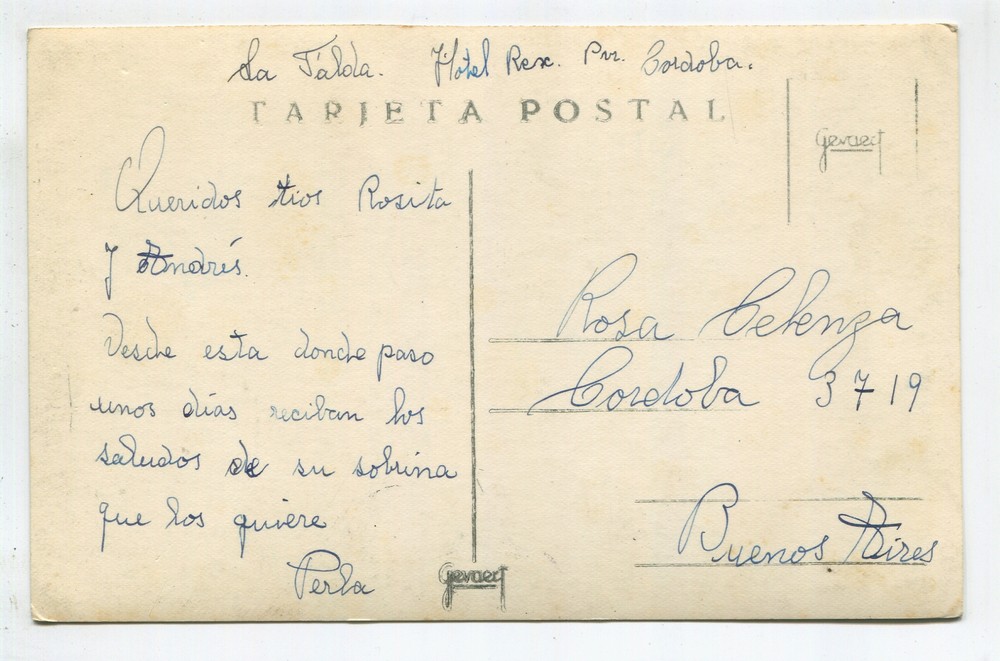 La Falda. Hotel Rex. Pvr. Cordoba.
TARJETA POSTAL
Gevaert
Queridos tios Rosita
y Andrés.
Desde esta donde paso
unos días reciban los
saludos de su sobrina
que los quiere
Perla
Gevaert
Rosa Celenza
Cordoba 3719
Buenos Aires